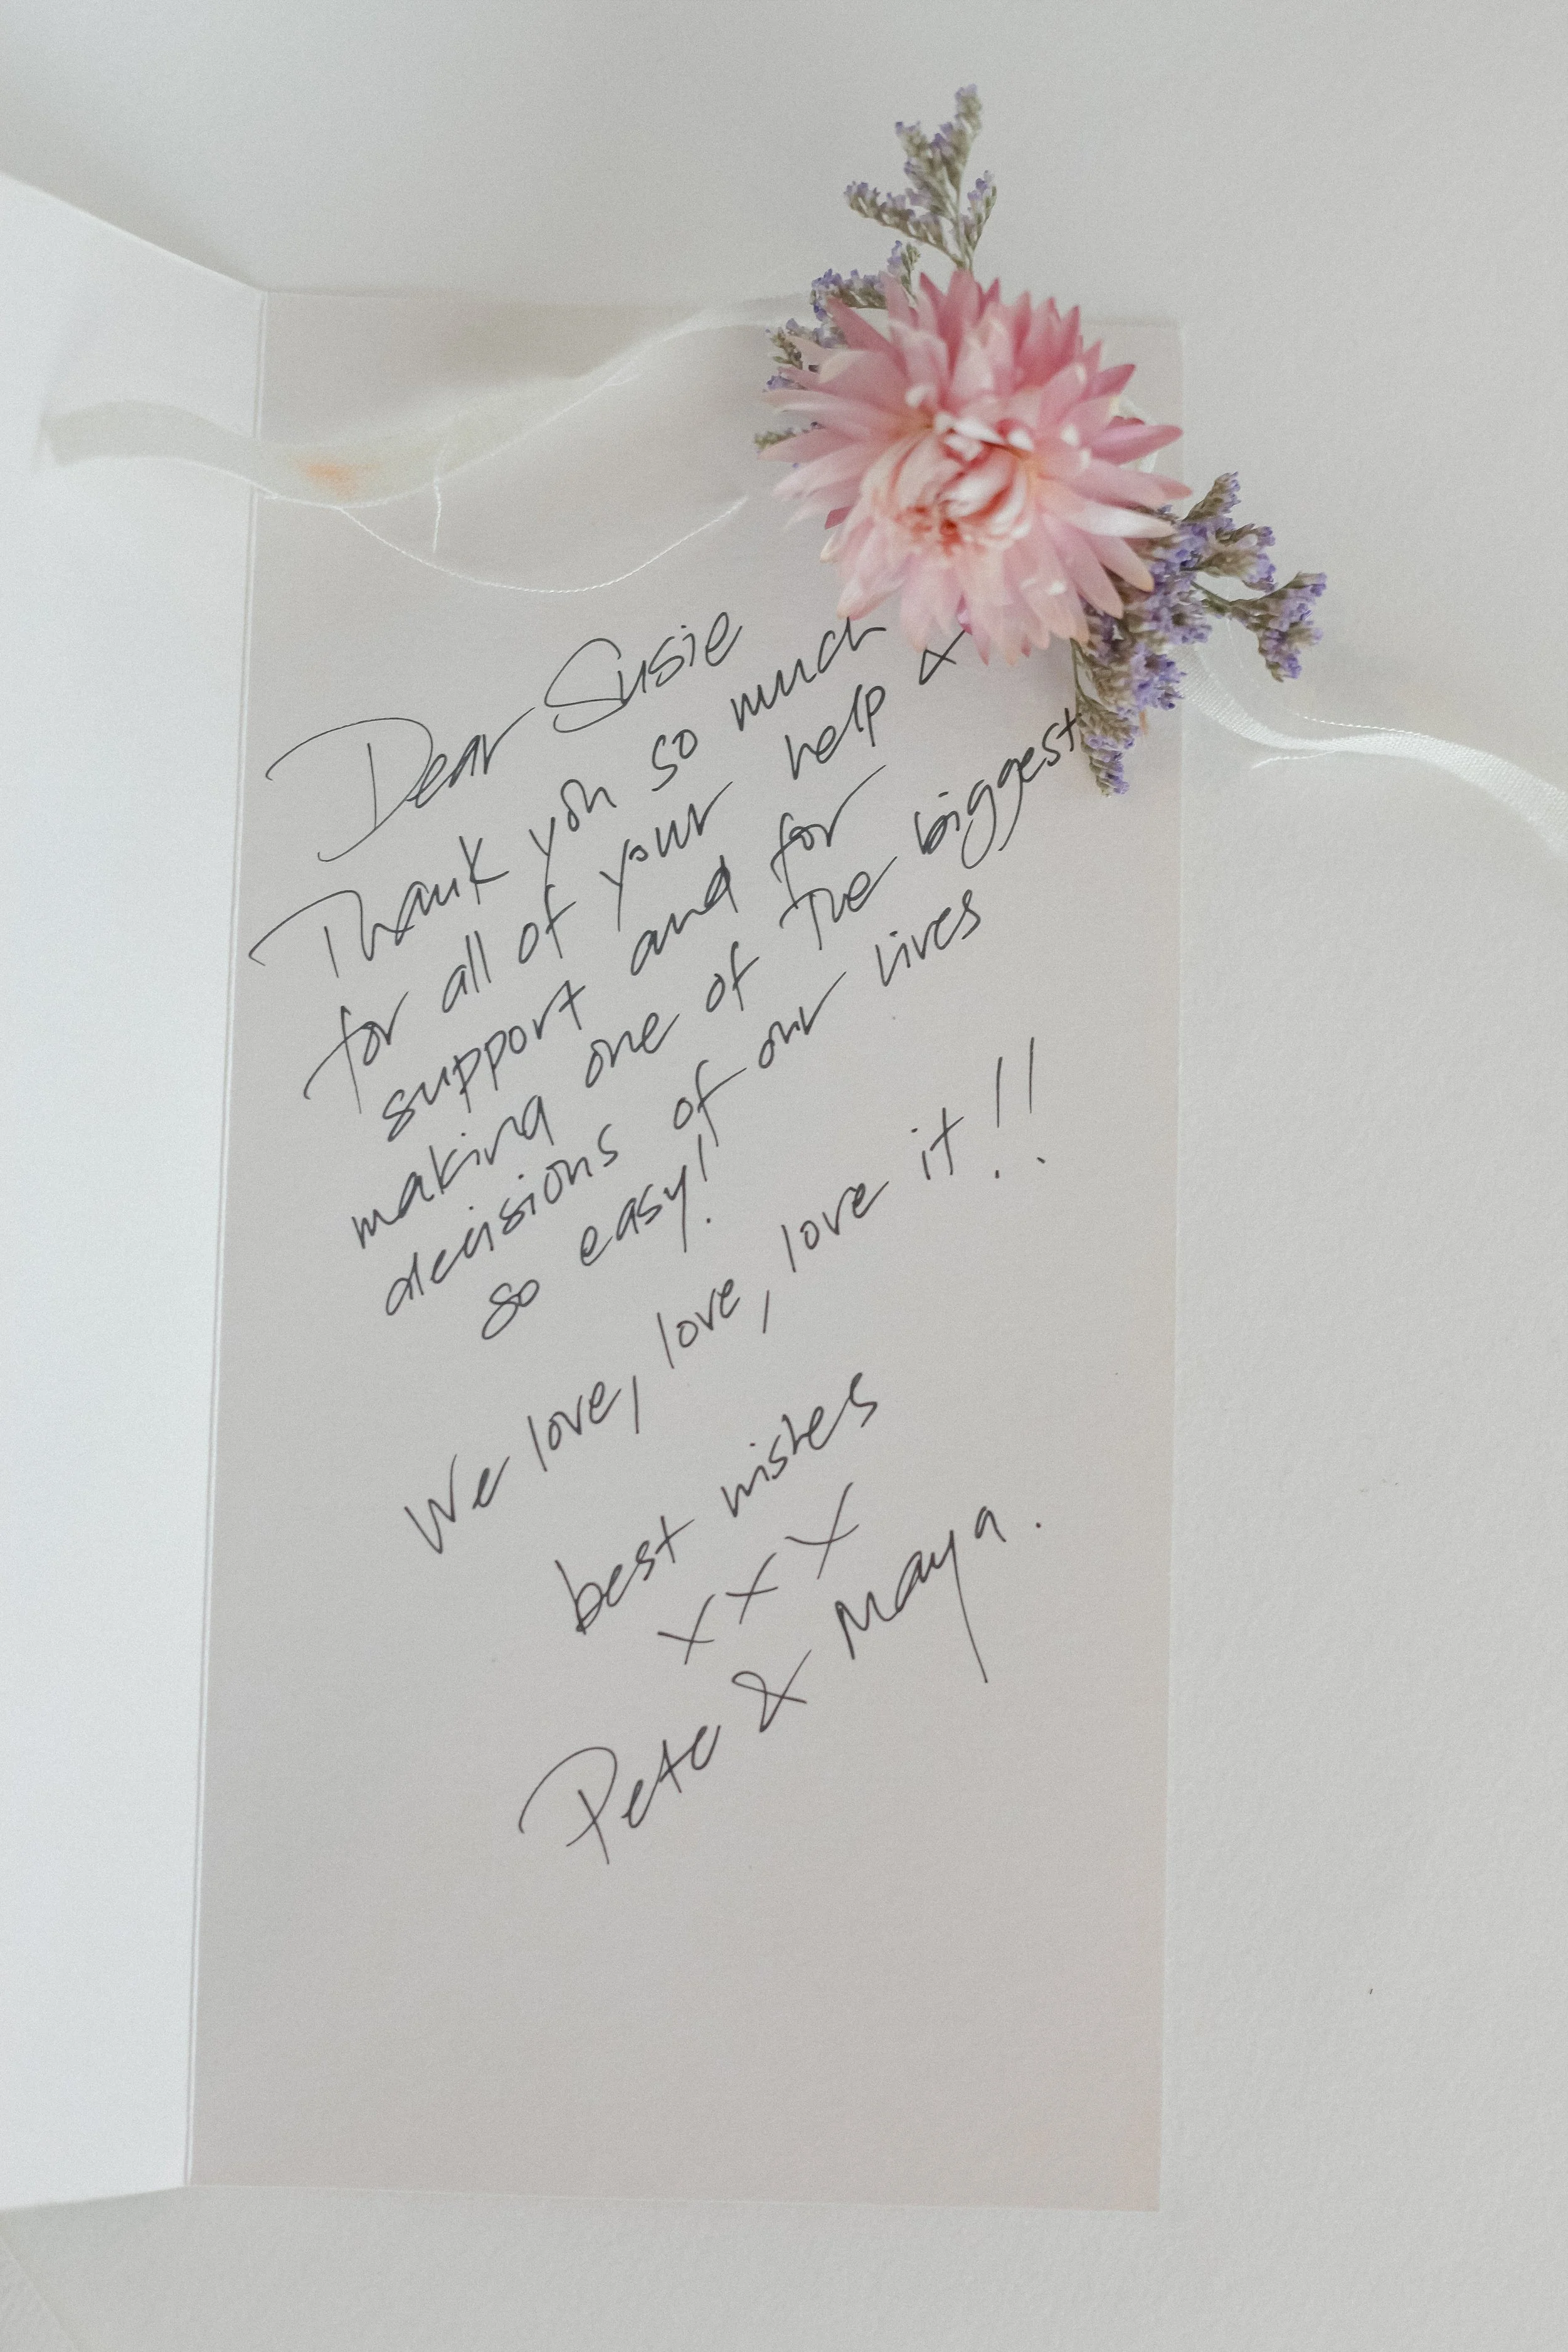 Dear Susie
Thank you so much
for all of your help &
support and for
making one of the biggest
decisions of our lives
so easy!
We love, love, love it!!
best wishes
xxx
Pete & Maya.